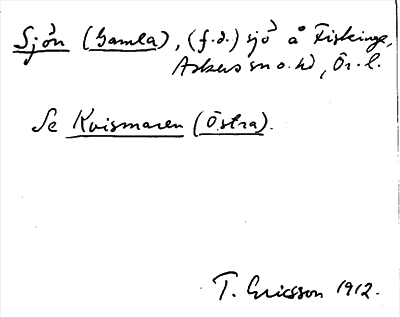 Sjön (Gamla), (f.d.) sjö å Fiskinge,
Askers sn o. hd, Ör. l.
Se Kvismaren (Östra).
T. Ericsson 1912.